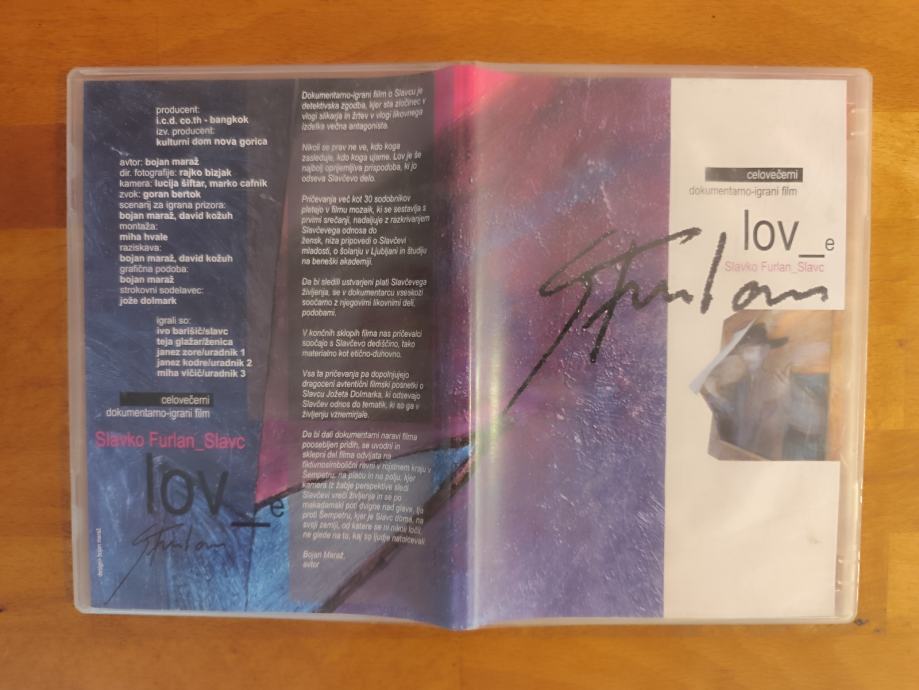 producent:
i.c.d. co.th - bangkok
izv. producent:
kulturni dom nova gorica
avtor: bojan maraž
dir. fotografije: rajko bizjak
kamera: lucija šiftar, marko cafnik
zvok: goran bertok
scenarij za igrana prizora:
bojan maraž, david kožuh
montaža:
miha hvale
raziskava:
bojan maraž, david kožuh
grafična podoba:
bojan maraž
strokovni sodelavec:
jože dolmark
igrali so:
ivo barišič/slavc
teja glažar/ženica
janez zore/uradnik 1
janez kodre/uradnik 2
miha vičič/uradnik 3
celovečerni
dokumentarno-igrani film
Slavko Furlan_Slavc
lov_e
SFurlan
design: bojan maraž
Dokumentarno-igrani film o Slavcu je
detektivska zgodba, kjer sta zločinec v
vlogi slikarja in žrtev v vlogi likovnega
izdelka večna antagonista.
Nikoli se prav ne ve, kdo koga
zasleduje, kdo koga ujame. Lov je še
najbolj oprijemljiva prispodoba, ki jo
odseva Slavčevo delo.
Pričevanja več kot 30 sodobnikov
pletejo v filmu mozaik, ki se sestavlja s
prvimi srečanji, nadaljuje z razkrivanjem
Slavčevega odnosa do
žensk, niza pripovedi o Slavčevi
mladosti, o šolanju v Ljubljani in študiju
na beneški akademiji.
Da bi sledili ustvarjeni plati Slavčevega
življenja, se v dokumentarcu vseskozi
soočamo z njegovimi likovnimi deli,
podobami.
V končnih sklopih filma nas pričevalci
soočajo s Slavčevo dediščino, tako
materialno kot etično-duhovno.
Vsa ta pričevanja pa dopolnjujejo
dragoceni avtentični filmski posnetki o
Slavcu Jožeta Dolmarka, ki odsevajo
Slavčev odnos do tematik, ki so ga v
življenju vznemirjale.
Da bi dali dokumentarni naravi filma
poosebljen pridih, se uvodni in
sklepni del filma odvijata na
fiktivnosimbolični ravni v rojstnem kraju v
Šempetru, na placu in na polju, kjer
kamera iz žabje perspektive sledi
Slavčevi vreči življenja in se po
makadamski poti dvigne nad glave, tja
proti Šempetru, kjer je Slavc doma, na
svoji zemlji, od katere se ni nikoli ločil,
ne glede na to, kaj so ljudje natolcevali.
Bojan Maraž,
avtor
celovečerni
dokumentarno-igrani film
lov_e
Slavko Furlan_Slavc
SFurlan